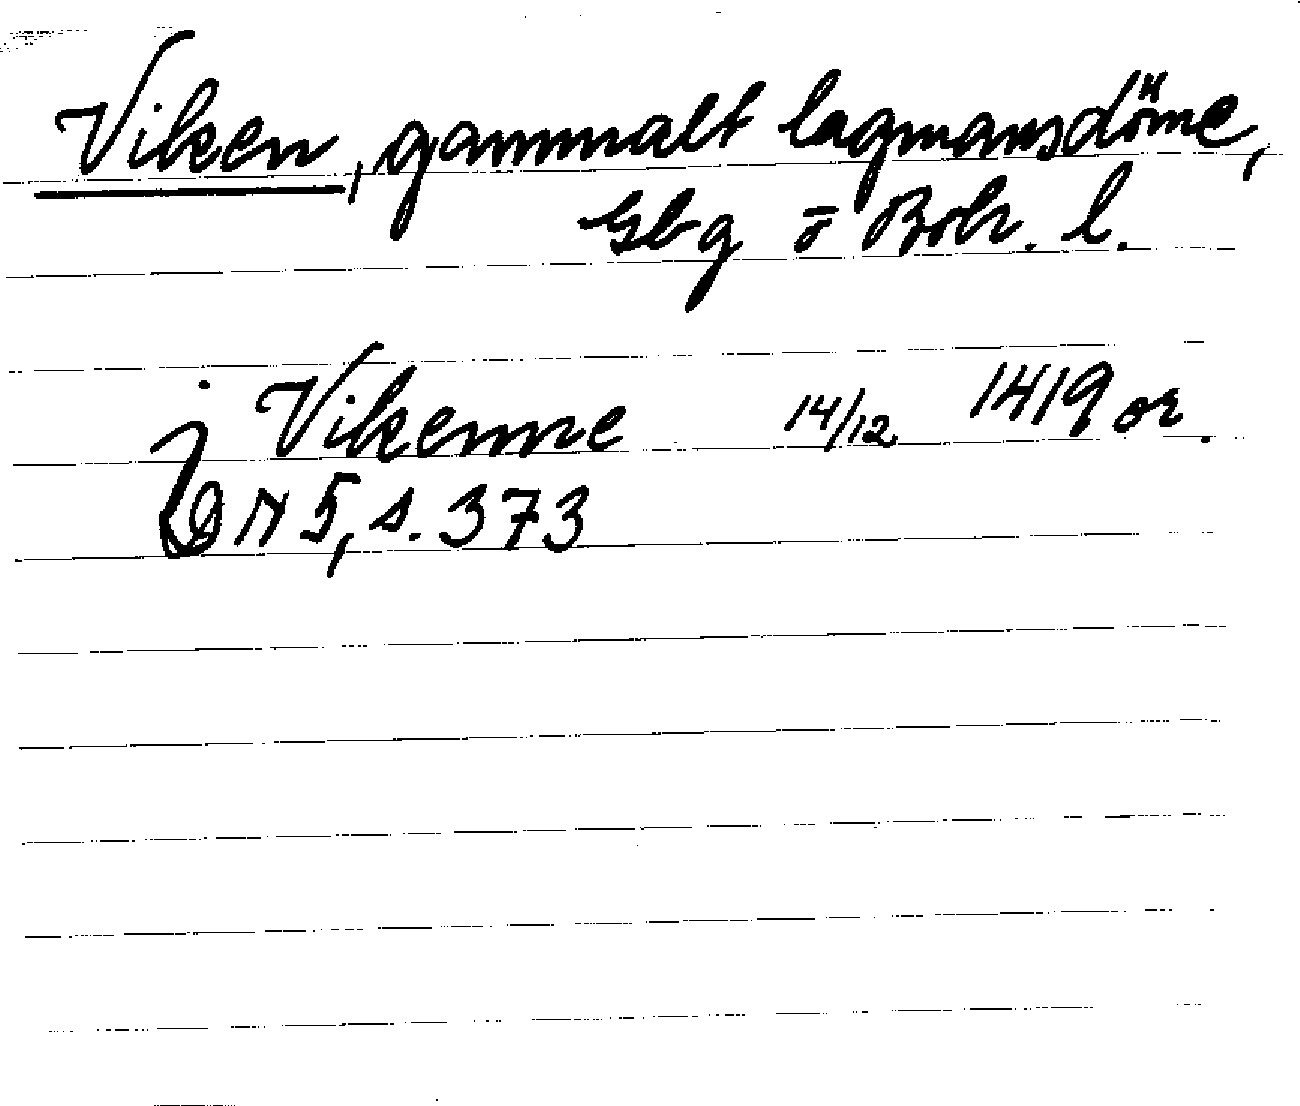 Viken, gammalt lagmansdöme,
Gbg ō Boh. l.
j Vikenne 14/12 1419 or.
DN 5, s. 373